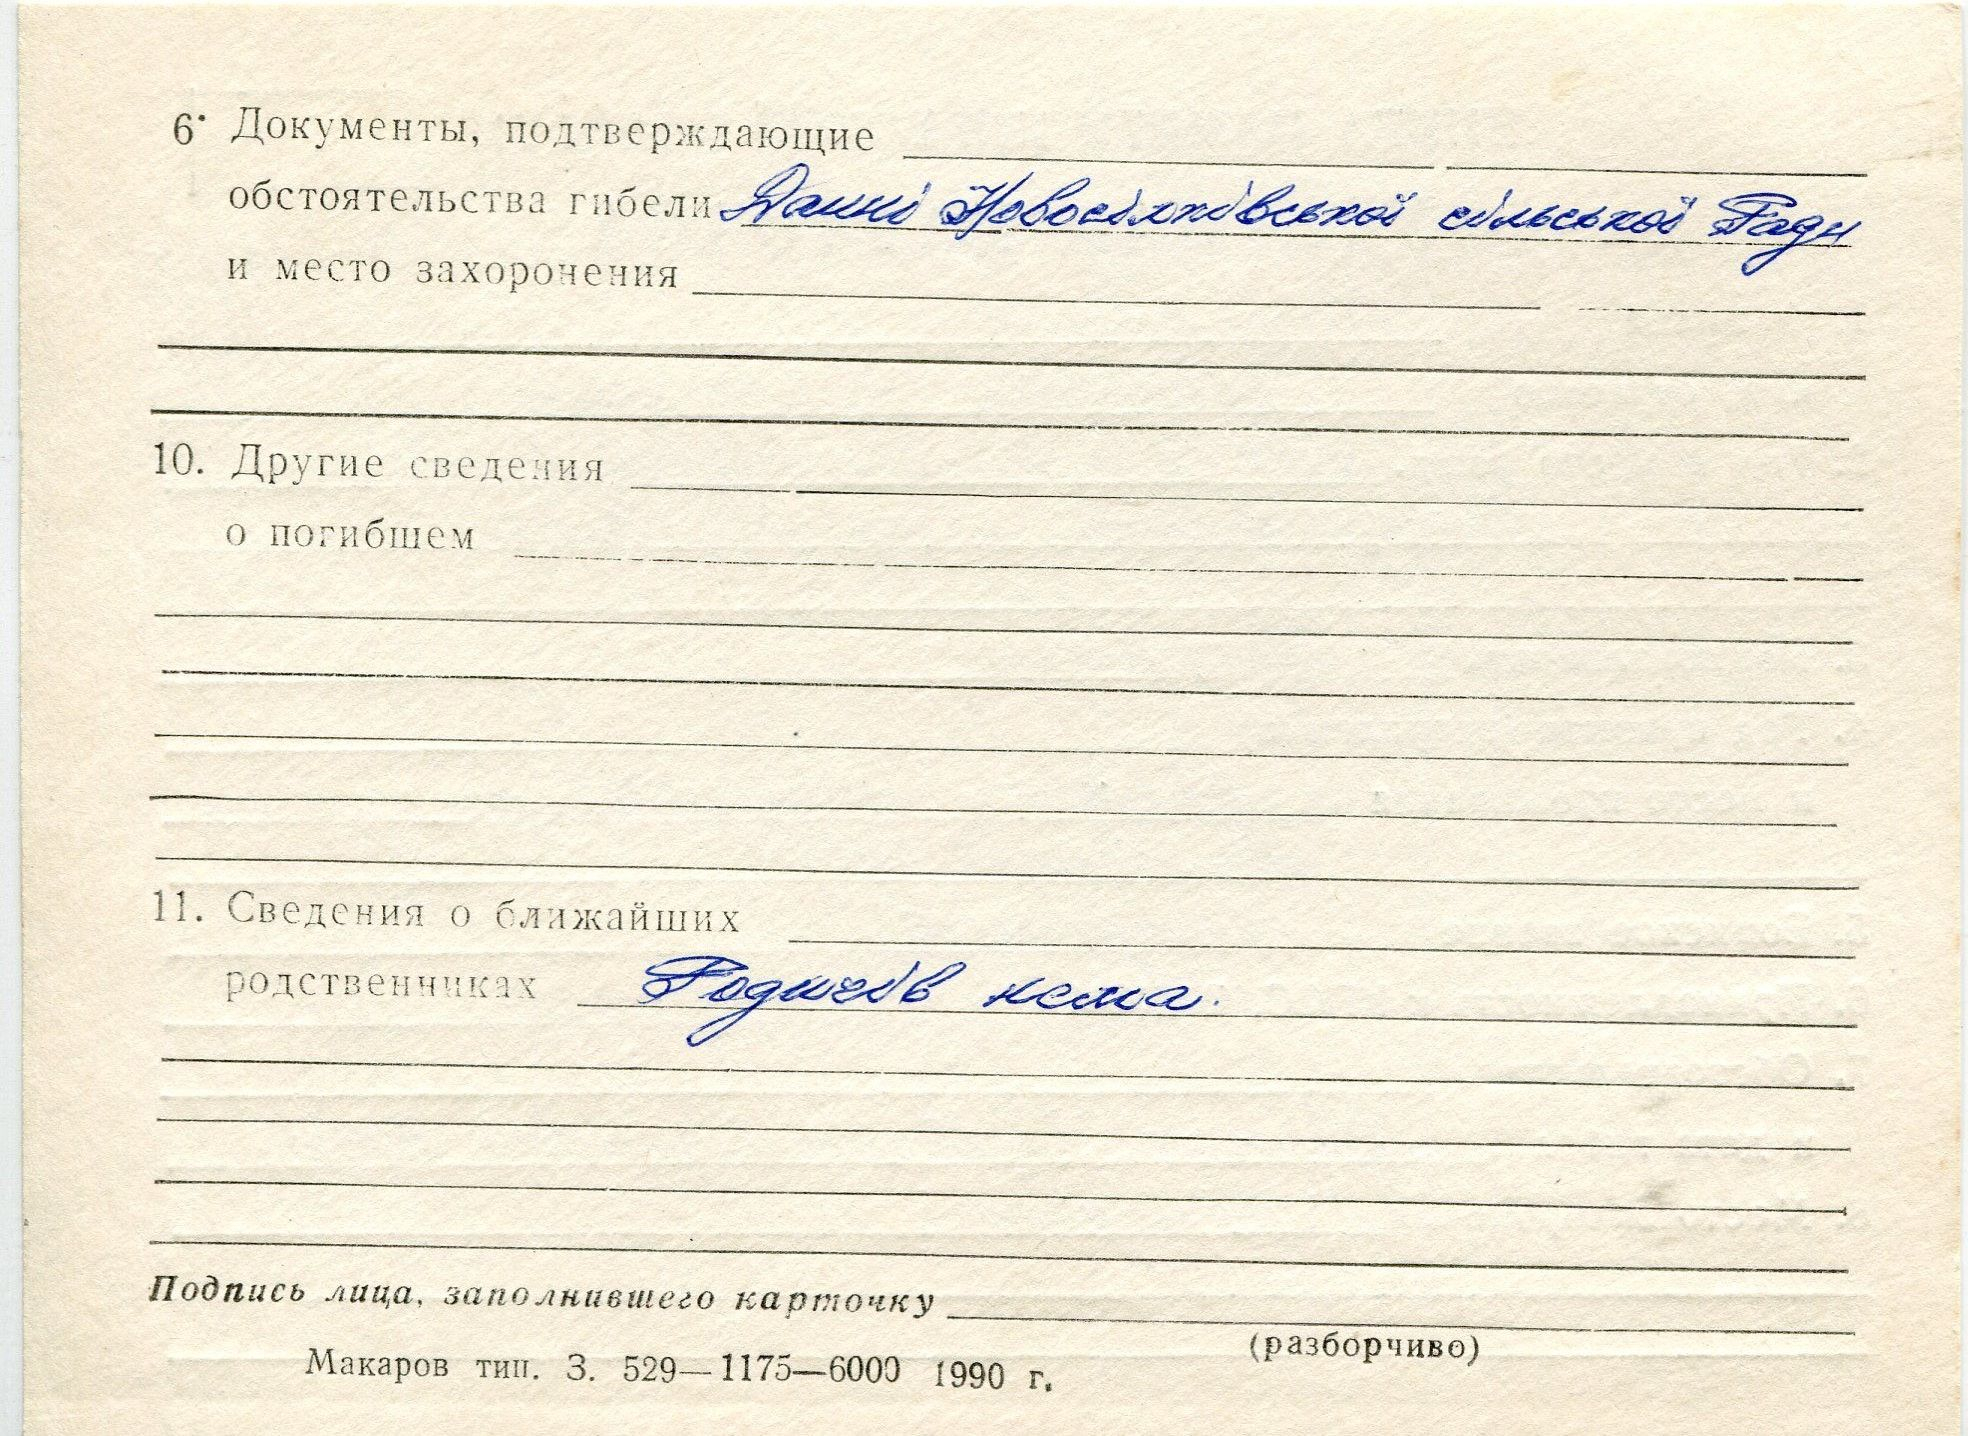 6. Документы, подтверждающие
обстоятельства гибели Данні Новосілківської сільської Ради
и место захоронения
10. Другие сведения
о погибшем
11. Сведения о ближайших
родственниках Родичів нема.
Подпись лица, заполнившего карточку
(разборчиво)
Макаров тип. З. 529—1175—6000 1990 г.